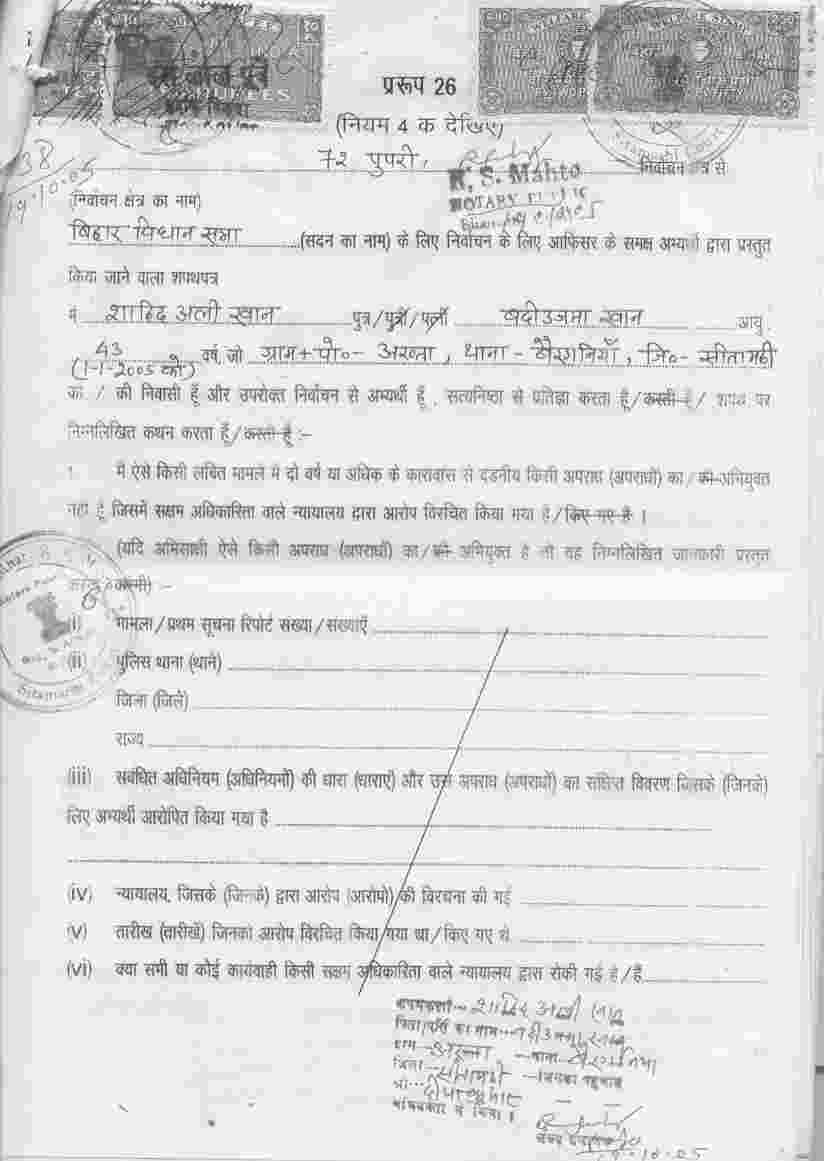 प्ररूप 26
(नियम 4 क देखिए)
72 पुपरी, निर्वाचन क्षेत्र से
R. S. Mahto
NOTARY
38
19.10.05
(निर्वाचन क्षेत्र का नाम)
बिहार विधान सभा (सदन का नाम) के लिए निर्वाचन के लिए आफिसर के समक्ष अभ्यर्थी द्वारा प्रस्तुत
किया जाने वाला शपथपत्र
मैं शाहिद अली खान पुत्र/पुत्री/पत्नी बदीउजमा खान आयु
43 वर्ष, जो ग्राम+पो०- अख्ता, थाना- बैरगनियाँ, जि०- सीतामढ़ी
(1-1-2005 को)
का / की निवासी हूँ और उपरोक्त निर्वाचन से अभ्यर्थी हूँ, सत्यनिष्ठा से प्रतिज्ञा करता हूँ/करती हूँ/ शपथ पर
निम्नलिखित कथन करता हूँ/करती हूँ :-
1. मैं ऐसे किसी लंबित मामले में दो वर्ष या अधिक के कारावास से दंडनीय किसी अपराध (अपराधों) का/की अभियुक्त
नहीं हूँ जिसमें सक्षम अधिकारिता वाले न्यायालय द्वारा आरोप विरचित किया गया है/किए गए हैं ।
(यदि अभिसाक्षी ऐसे किसी अपराध (अपराधों) का/की अभियुक्त है तो वह निम्नलिखित जानकारी प्रस्तुत
करेगा/करेगी) :-
(i) मामला/प्रथम सूचना रिपोर्ट संख्या/संख्याएँ
(ii) पुलिस थाना (थाने)
जिला (जिले)
राज्य
(iii) संबंधित अधिनियम (अधिनियमों) की धारा (धाराएँ) और उस अपराध (अपराधों) का संक्षिप्त विवरण जिसके (जिनके)
लिए अभ्यर्थी आरोपित किया गया है
(iv) न्यायालय, जिसके (जिनके) द्वारा आरोप (आरोपों) की विरचना की गई
(v) तारीख (तारीखें) जिनका आरोप विरचित किया गया था/किए गए थे
(vi) क्या सभी या कोई कार्यवाही किसी सक्षम अधिकारिता वाले न्यायालय द्वारा रोकी गई है/हैं
शपथकर्ता शाहिद अली खान
पिता/पति का नाम बदीउजमा खान
ग्राम अख्ता थाना बैरगनिया
जिला सीतामढ़ी जिनका पहचान
श्री